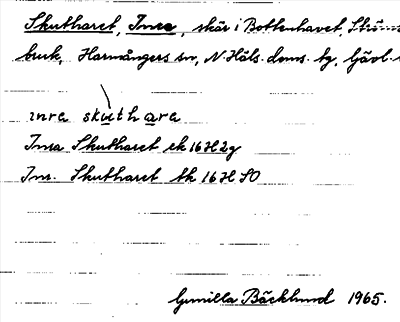 Skutharet, Inre, skär i Bottenhavet, Ströms-
bruk, Harmångers sn, N.Häls. doms. tg, Gävl.
inre skuthare
Inra Skutharet ek 16H2g
Inr. Skutharet tk 16H SO
Gunilla Bäcklund 1965.